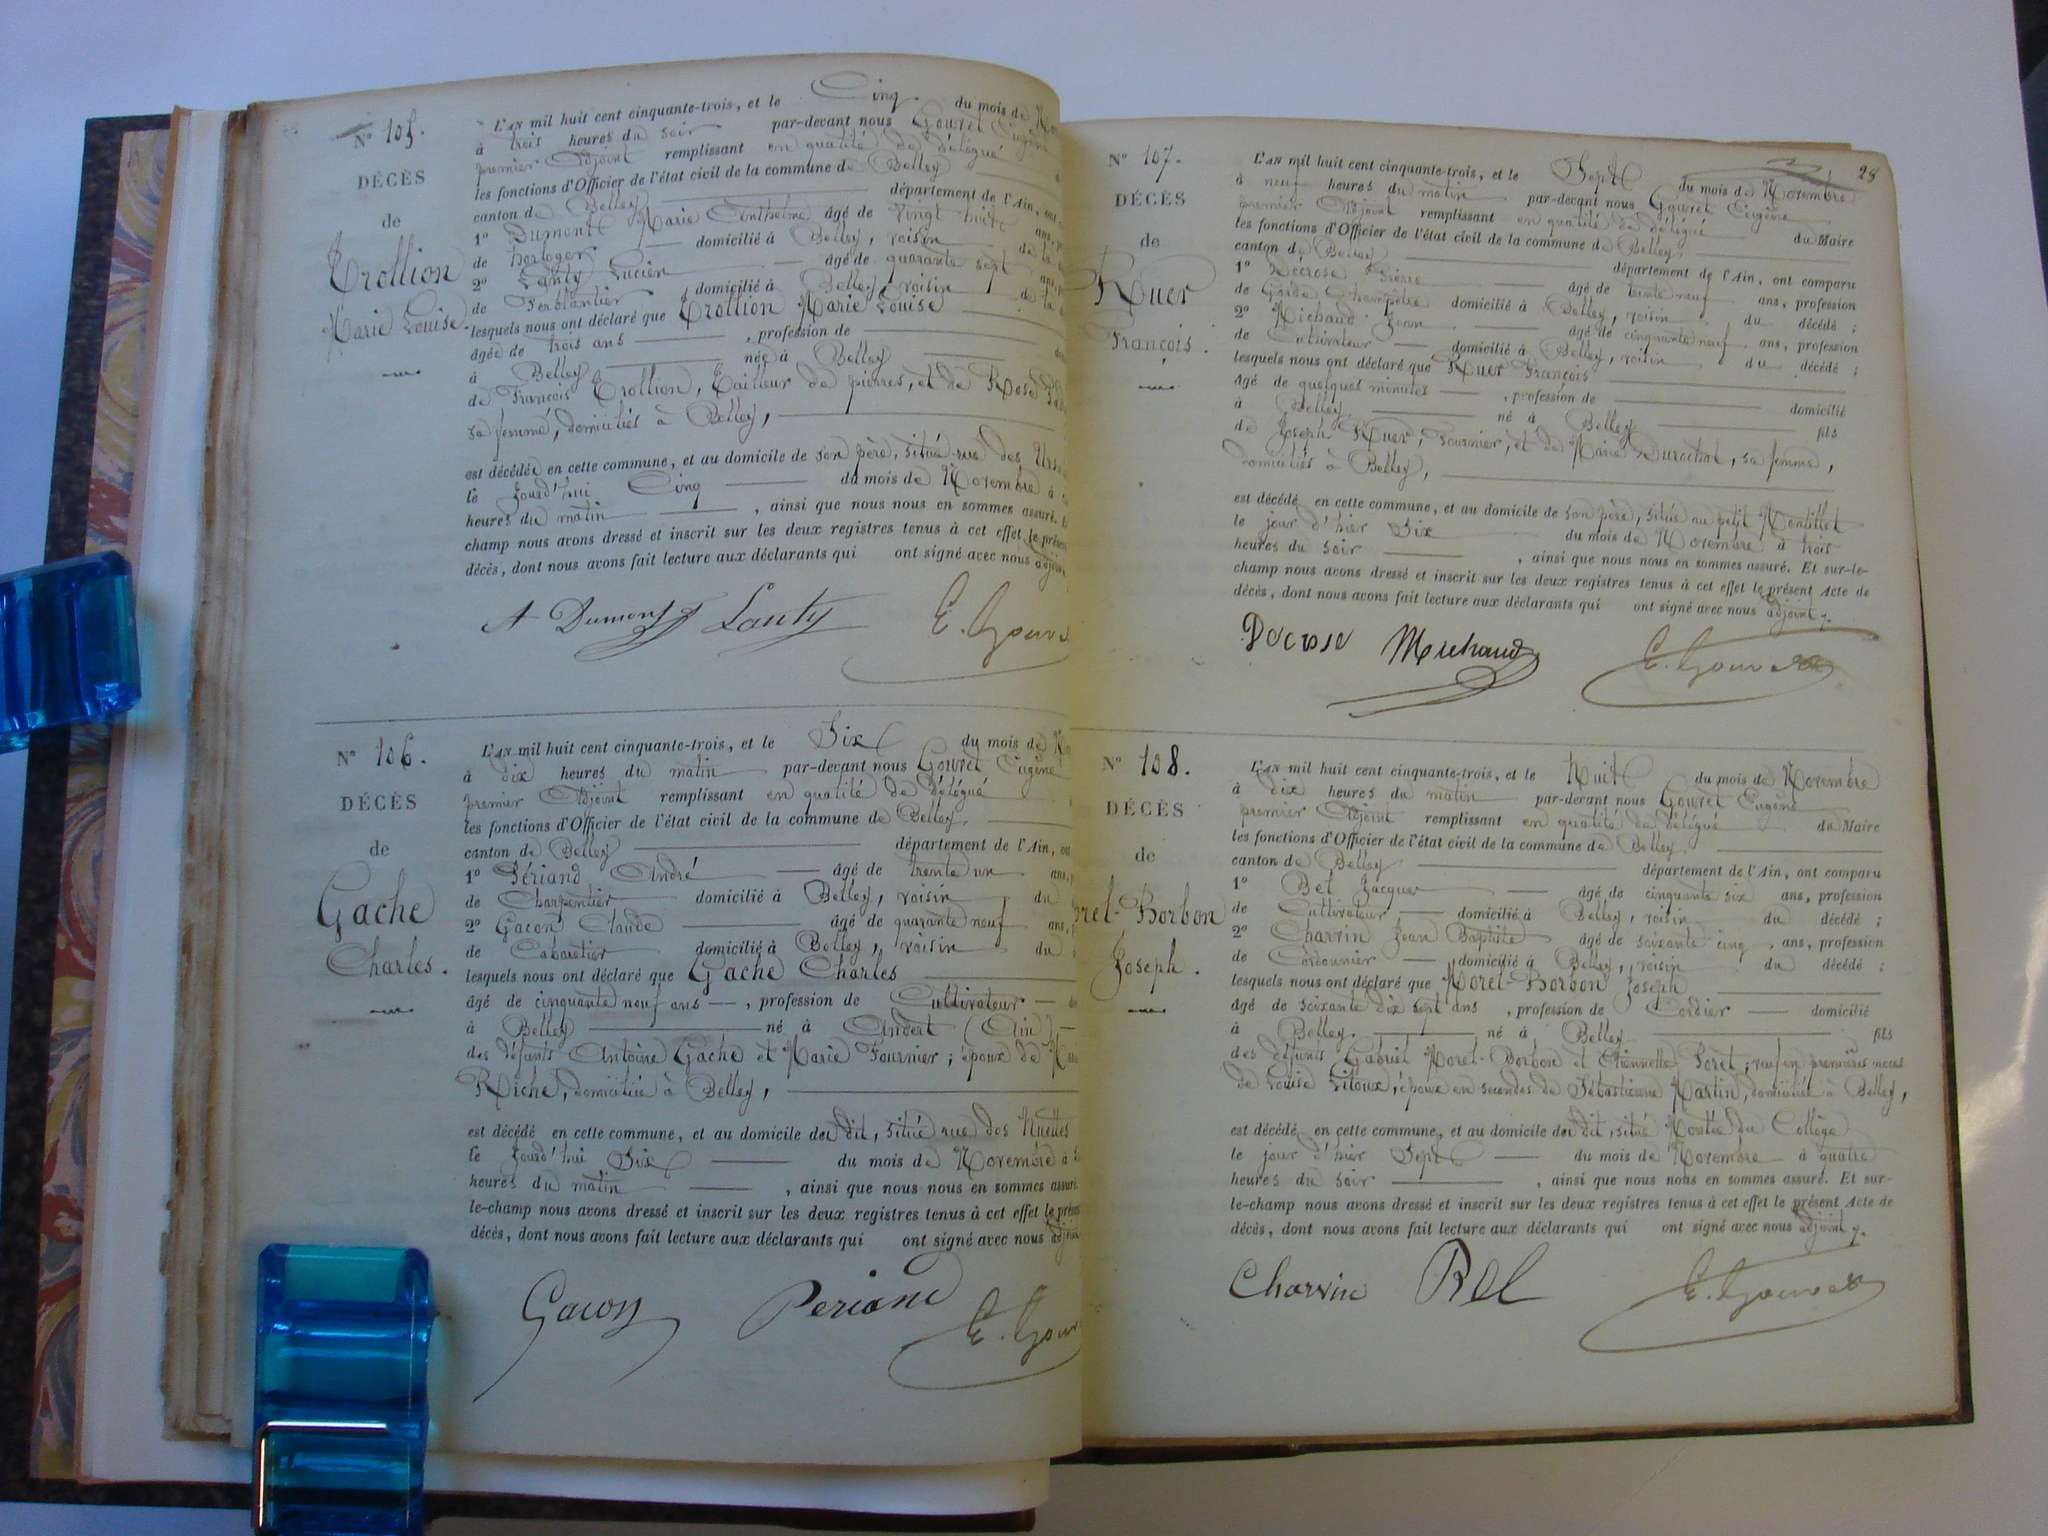 N° 105.
DÉCÈS
de
Trollion
Marie Louise.
L'AN mil huit cent cinquante-trois, et le Cinq du mois de
à trois heures du soir par-devant nous Gouvet Eugène
premier Adjoint remplissant en qualité de délégué
les fonctions d'Officier de l'état civil de la commune de Belley
canton de Belley département de l'Ain, ont
1° Dumont Marie Anthelme âgé de vingt huit ans,
de horloger domicilié à Belley, voisin de la
2° Lanty Lucien âgé de quarante sept ans,
de Ferblantier domicilié à Belley, voisin de la
lesquels nous ont déclaré que Trollion Marie Louise
âgée de trois ans , profession de
à Belley née à Belley
de François Trollion, Tailleur de pierres, et de Rose
sa femme, domiciliés à Belley,
est décédée en cette commune, et au domicile de son père, situé rue des
le jourd'hui Cinq du mois de Novembre à
heures du matin , ainsi que nous nous en sommes assuré.
champ nous avons dressé et inscrit sur les deux registres tenus à cet effet le
décès, dont nous avons fait lecture aux déclarants qui ont signé avec nous
A Dumont Lanty E. Gouv
N° 106.
DÉCÈS
de
Gache
Charles.
L'AN mil huit cent cinquante-trois, et le Six du mois de
à dix heures du matin par-devant nous Gouvet Eugène
premier Adjoint remplissant en qualité de délégué
les fonctions d'Officier de l'état civil de la commune de Belley.
canton de Belley département de l'Ain, ont
1° Périand André âgé de trente un ans,
de Charpentier domicilié à Belley, voisin du
2° Gacon Claude âgé de quarante neuf ans,
de Cabaretier domicilié à Belley, voisin du
lesquels nous ont déclaré que Gache Charles
âgé de cinquante neuf ans , profession de Cultivateur
à Belley né à Andert (Ain)
des défunts Antoine Gache et Marie Fournier ; époux de
Riche, domiciliée à Belley,
est décédé en cette commune, et au domicile du dit, situé rue des Muettes
le jourd'hui Six du mois de Novembre à
heures du matin , ainsi que nous nous en sommes assuré.
le-champ nous avons dressé et inscrit sur les deux registres tenus à cet effet le
décès, dont nous avons fait lecture aux déclarants qui ont signé avec nous
Gacon Periand E. Gouv
28
N° 107.
DÉCÈS
de
Ruer
François.
L'AN mil huit cent cinquante-trois, et le Sept du mois de Novembre
à neuf heures du matin par-devant nous Gouvet Eugène
premier Adjoint remplissant en qualité de délégué du Maire
les fonctions d'Officier de l'état civil de la commune de Belley.
canton de Belley département de l'Ain, ont comparu
1° Décrose Pierre âgé de trente neuf ans, profession
de Garde Champêtre domicilié à Belley, voisin du décédé ;
2° Michaud Jean âgé de cinquante neuf ans, profession
de Cultivateur domicilié à Belley, voisin du décédé ;
lesquels nous ont déclaré que Ruer François
âgé de quelques minutes , profession de domicilié
à Belley né à Belley fils
de Joseph Ruer, Fournier, et de Marie Durochat, sa femme,
domiciliés à Belley,
est décédé en cette commune, et au domicile de son père, situé au petit Montillet
le jour d'hier Six du mois de Novembre à trois
heures du soir , ainsi que nous nous en sommes assuré. Et sur-le-
champ nous avons dressé et inscrit sur les deux registres tenus à cet effet le présent Acte de
décès, dont nous avons fait lecture aux déclarants qui ont signé avec nous adjoint
Decrose Michaud E. Gouvet
N° 108.
DÉCÈS
de
rel-Borbon
Joseph.
L'AN mil huit cent cinquante-trois, et le Huit du mois de Novembre
à dix heures du matin par-devant nous Gouvet Eugène
premier Adjoint remplissant en qualité de délégué du Maire
les fonctions d'Officier de l'état civil de la commune de Belley.
canton de Belley département de l'Ain, ont comparu
1° Bel Jacques âgé de cinquante six ans, profession
de Cultivateur domicilié à Belley, voisin du décédé ;
2° Charvin Jean Baptiste âgé de soixante cinq, ans, profession
de Cordonnier domicilié à Belley, voisin du décédé ;
lesquels nous ont déclaré que Morel-Borbon Joseph
âgé de soixante dix sept ans , profession de Cordier domicilié
à Belley. né à Belley fils
des défunts Gabriel Morel-Borbon et Etiennette Poret ; veuf en premières noces
de Louise Litoux, époux en secondes de Sébastienne Martin, domiciliée à Belley,
est décédé en cette commune, et au domicile du dit, situé Montée du Collège
le jour d'hier Sept du mois de Novembre à quatre
heures du soir , ainsi que nous nous en sommes assuré. Et sur-
le-champ nous avons dressé et inscrit sur les deux registres tenus à cet effet le présent Acte de
décès, dont nous avons fait lecture aux déclarants qui ont signé avec nous adjoint
Charvin Bel E. Gouvet